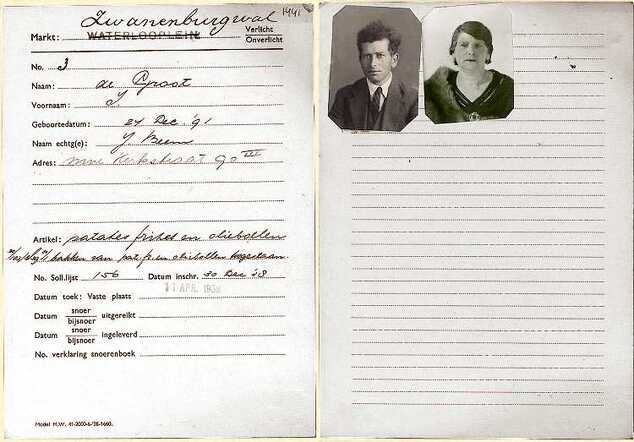 Zwanenburgwal 1941
Markt: WATERLOOPLEIN Verlicht
Onverlicht
No. 3
Naam: de Groot
Voornaam: I.
Geboortedatum: 24 Dec. '91
Naam echtg(e):
Adres: Kerkstraat 90 III
Artikel: patates frites en oliebollen
bakken van pat. fr. en oliebollen toegestaan
No. Soll.lijst 156 Datum inschr. 30 Dec '38
11 APR. 1938
Datum toek: Vaste plaats
Datum snoer uitgereikt
bijsnoer
Datum snoer ingeleverd
bijsnoer
No. verklaring snoerenboek
Model M.W. 41-2000-6/38-1660.